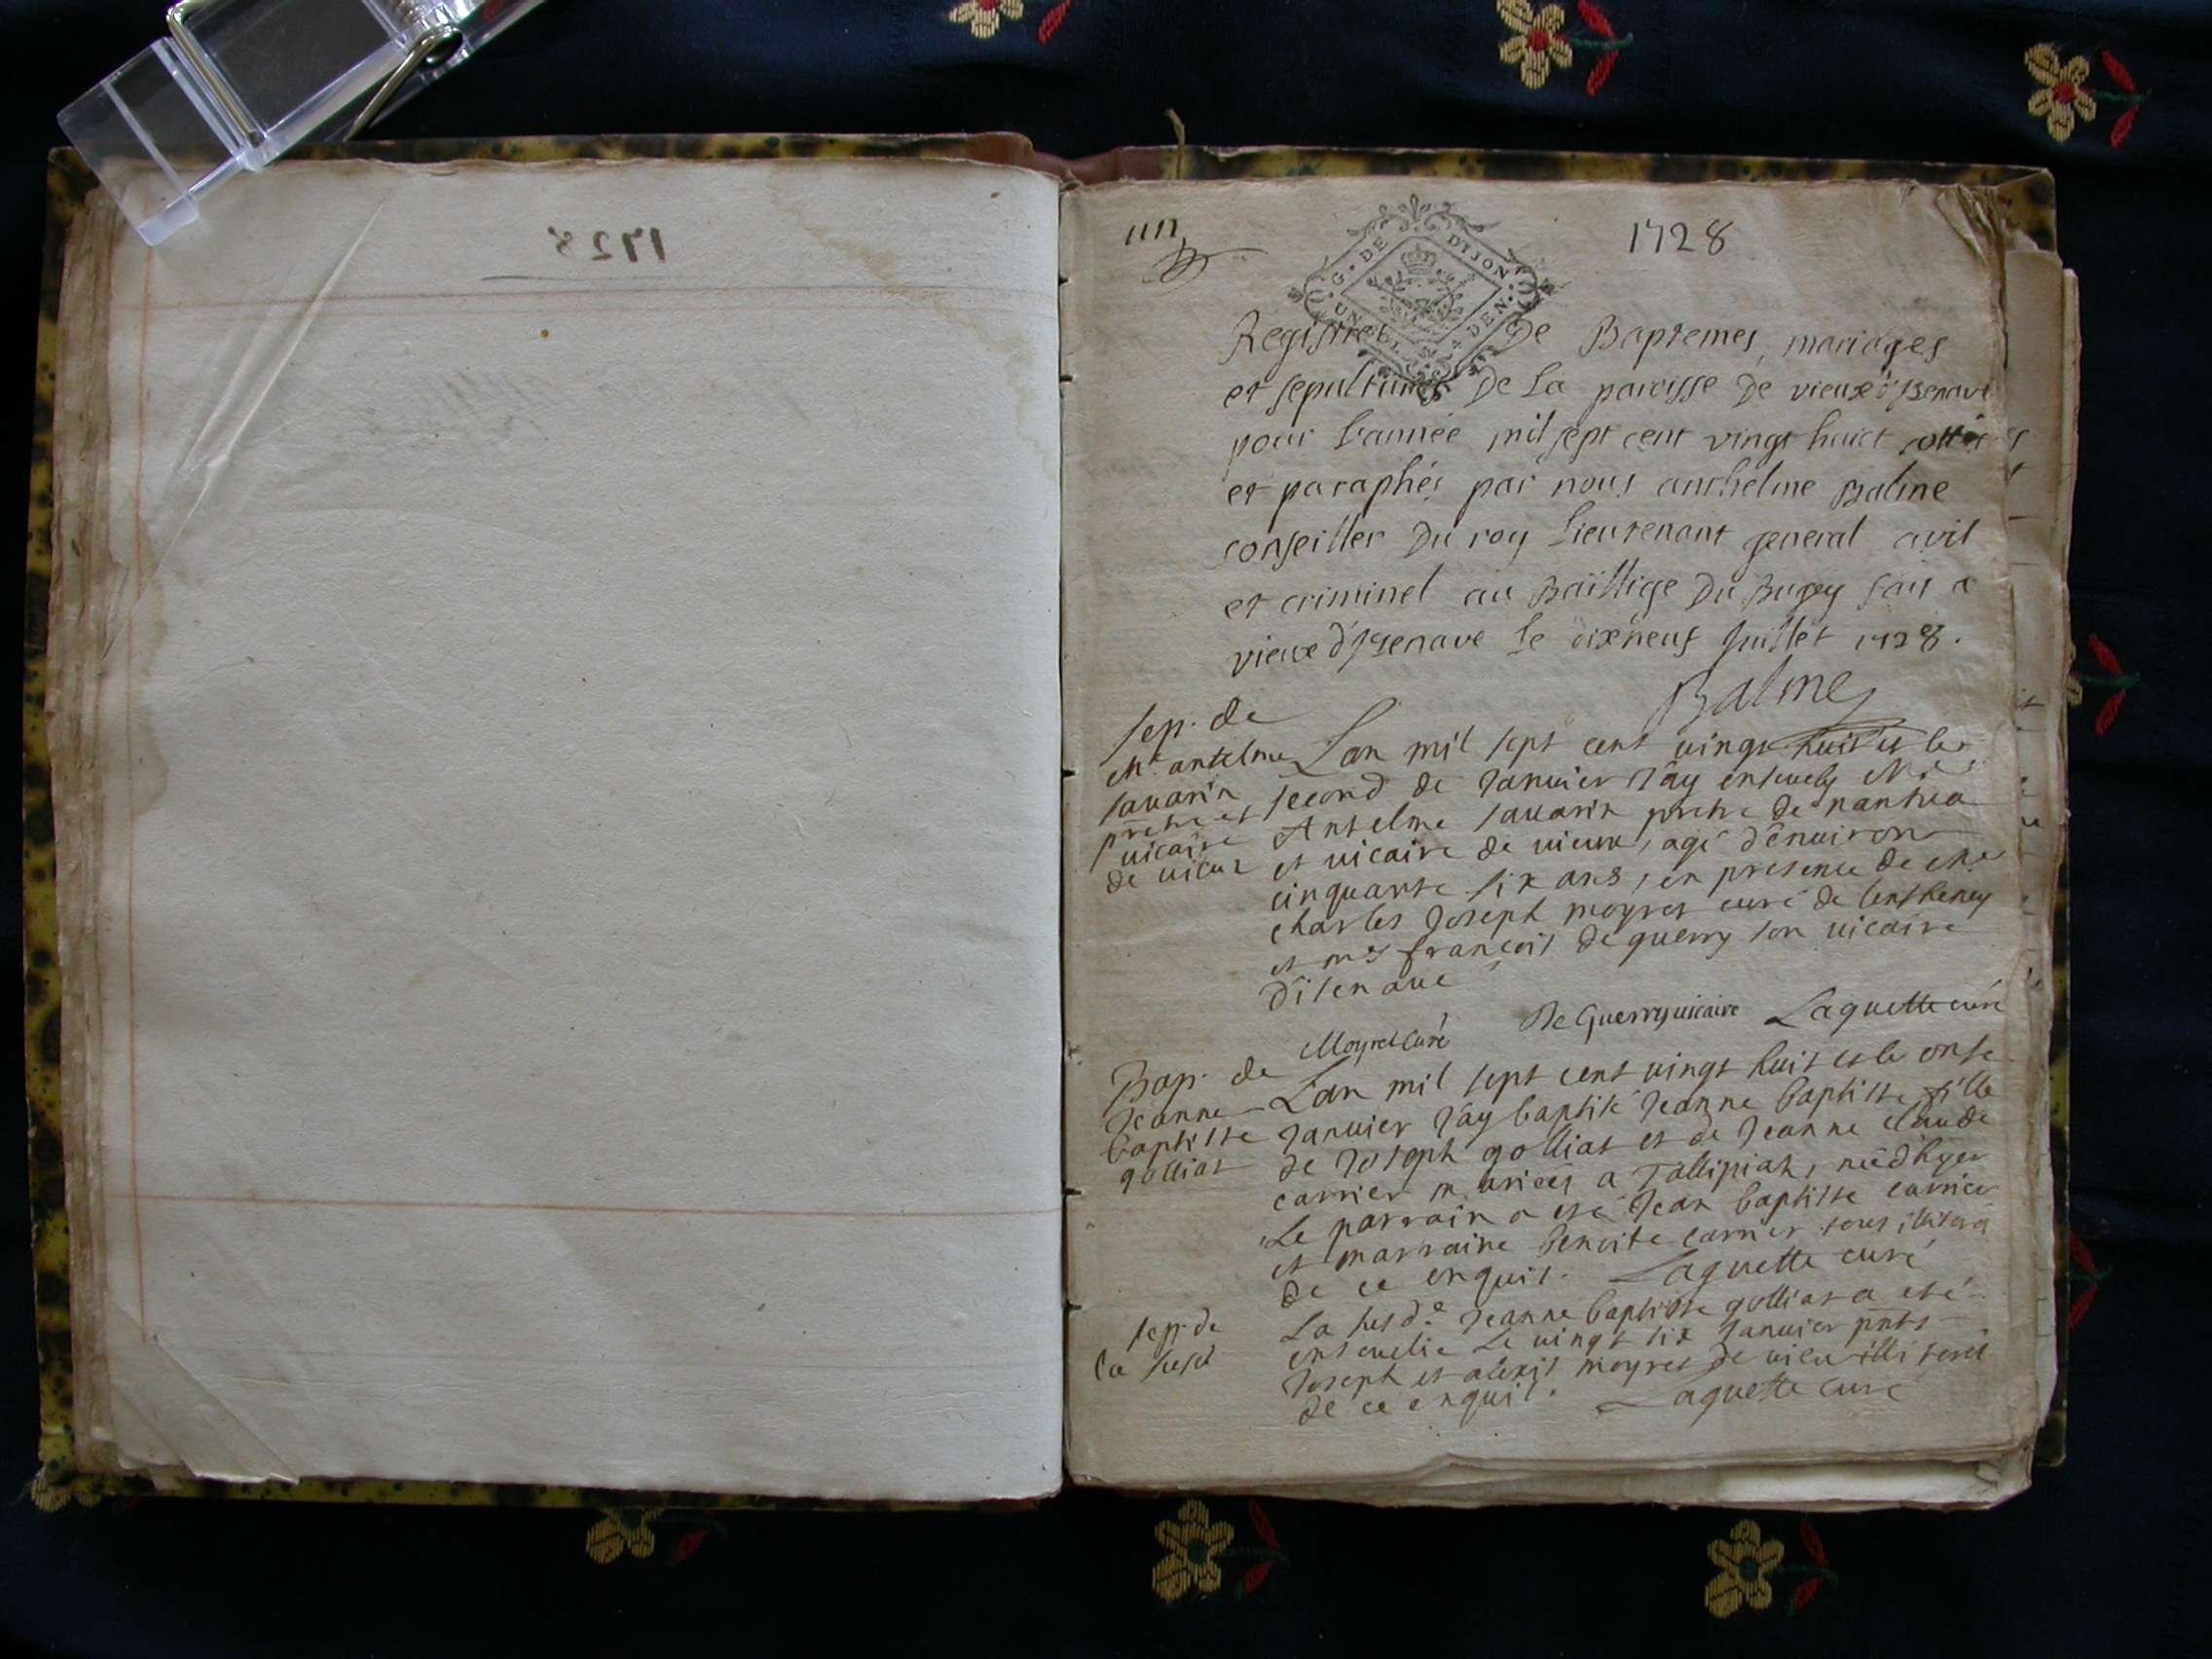 1728
un
1728
G. DE DIJON
UN 4 DEN.
Registres De Baptemes, mariages
et sepultures De La paroisse De vieux d'Isenave
pour L'année mil sept cent vingt huict cottés
et paraphés par nous anthelme Balme
conseiller Du roy Lieutenant general civil
et criminel au Bailliage Du Bugey fait a
vieux d'Isenave Le dix neuf Juillet 1728.
Balme
sep. de
mre antelme
sauarin
pretre et
uicaire
de uieux
Lan mil sept cent uingt huit et le
second de Januier J'ay enseuely Mre
Antelme sauarin pretre de nantua
et uicaire de uieux, agé d'enuiron
cinquante six ans, en presence de Mre
charles Joseph moyret curé de lentheney
et mre françois de guerry son uicaire
d'isenaue
Moyret curé De Guerry uicaire Laguette curé
Bap. de
Jeanne
baptiste
golliat
Lan mil sept cent uingt huit et le onse
Januier J'ay baptisé Jeanne baptiste fille
de Joseph golliat et de Jeanne claude
carrier mariés a Tallipiat, née d'hyer
Le parrain a esté Jean baptiste carrier
et marraine benoite carrier tous illiterés
de ce enquis. Laguette curé
sep. de
la susd
La susde Jeanne baptiste golliat a esté
enseuelie Le uingt six Januier pnts
Joseph et alexis moyret de uieu illiterés
de ce enquis. Laguette curé